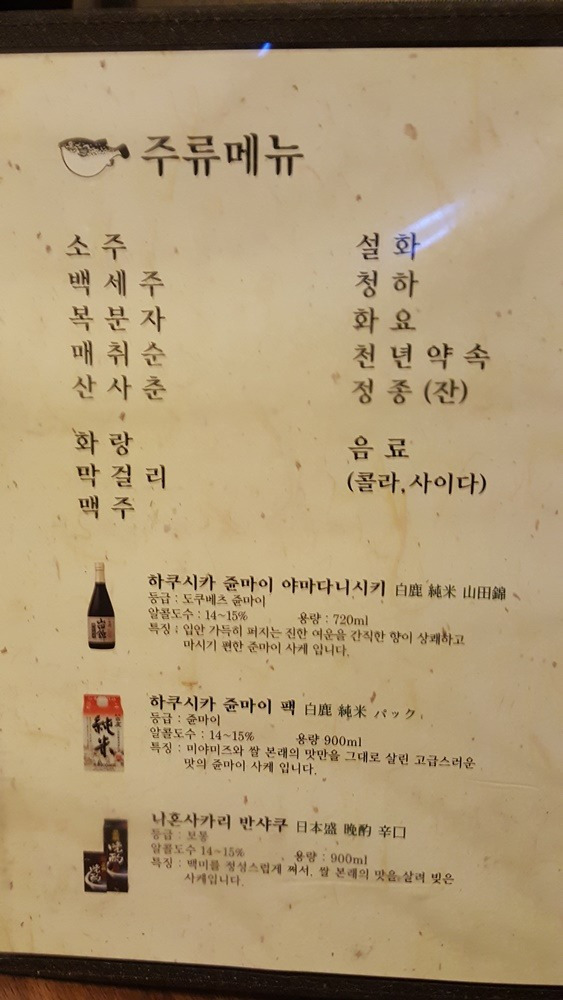 주류메뉴
소주
백세주
복분자
매취순
산사춘
화랑
막걸리
맥주
설화
청하
화요
천년약속
정종 (잔)
음료
(콜라,사이다)
하쿠시카 쥰마이 야마다니시키 白鹿 純米 山田錦
등급 : 도쿠베츠 쥰마이
알콜도수 : 14~15% 용량 : 720ml
특징 : 입안 가득히 퍼지는 진한 여운을 간직한 향이 상쾌하고
마시기 편한 준마이 사케 입니다.
하쿠시카 쥰마이 팩 白鹿 純米 パック
등급 : 쥰마이
알콜도수 : 14~15% 용량 900ml
특징 : 미야미즈와 쌀 본래의 맛만을 그대로 살린 고급스러운
맛의 쥰마이 사케 입니다.
니혼사카리 반샤쿠 日本盛 晩酌 辛口
등급 : 보통
알콜도수 14~15% 용량 : 900ml
특징 : 백미를 정성스럽게 쪄서, 쌀 본래의 맛을 살려 빚은
사케입니다.
純米